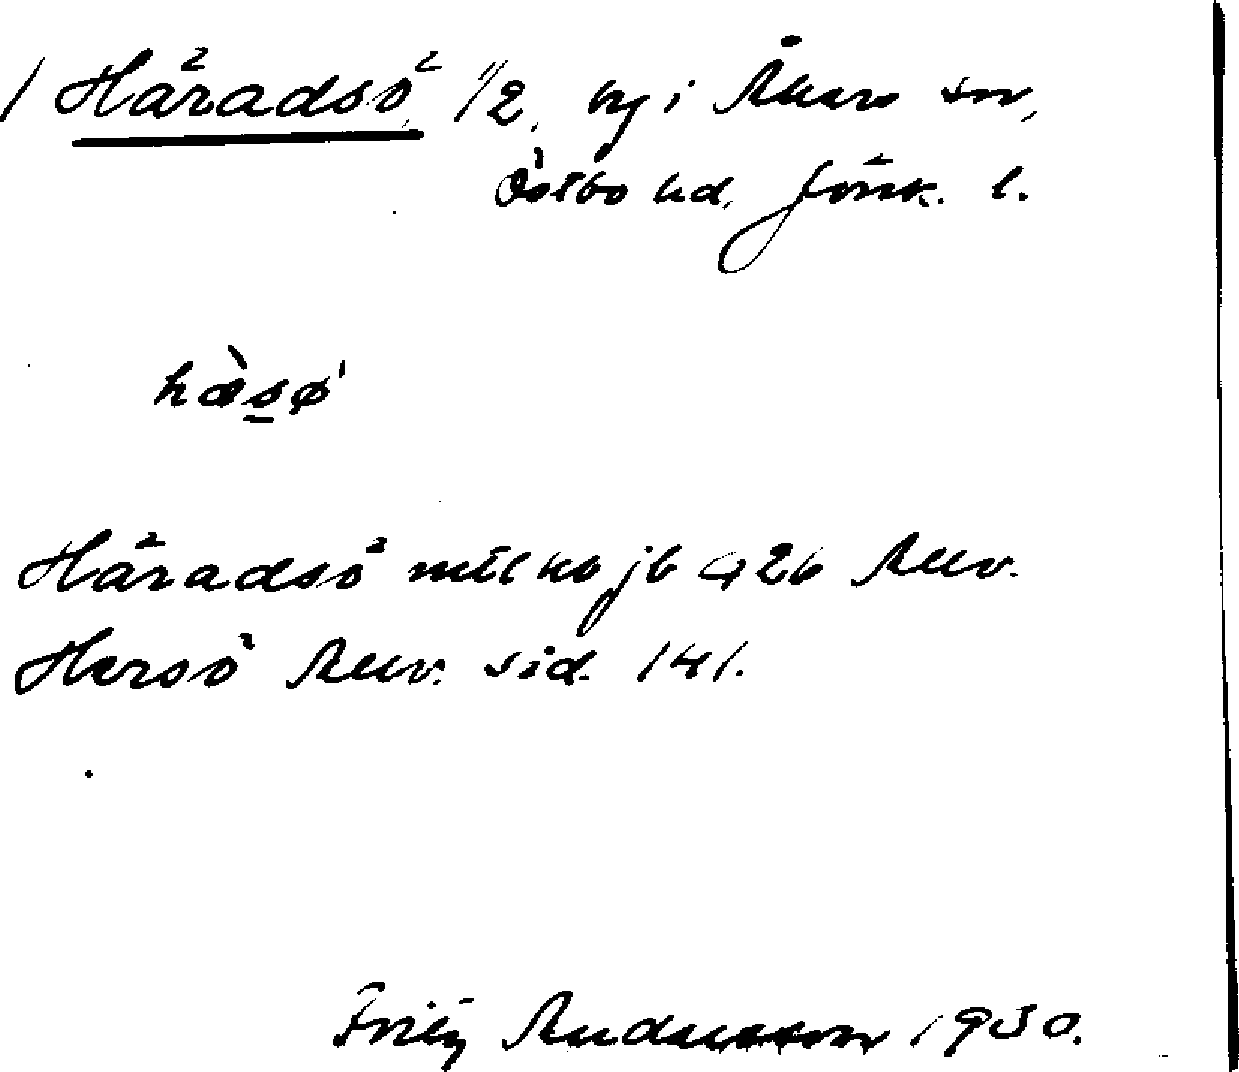 / Häradsö 1/2, by i Åkers sn,
Östbo hd, Jönk. l.
hæ̀sø'
Häradsö mtl kb jb 426 Allv.
Hersö Allv. sid. 141.
Fritz Andersson 1930.